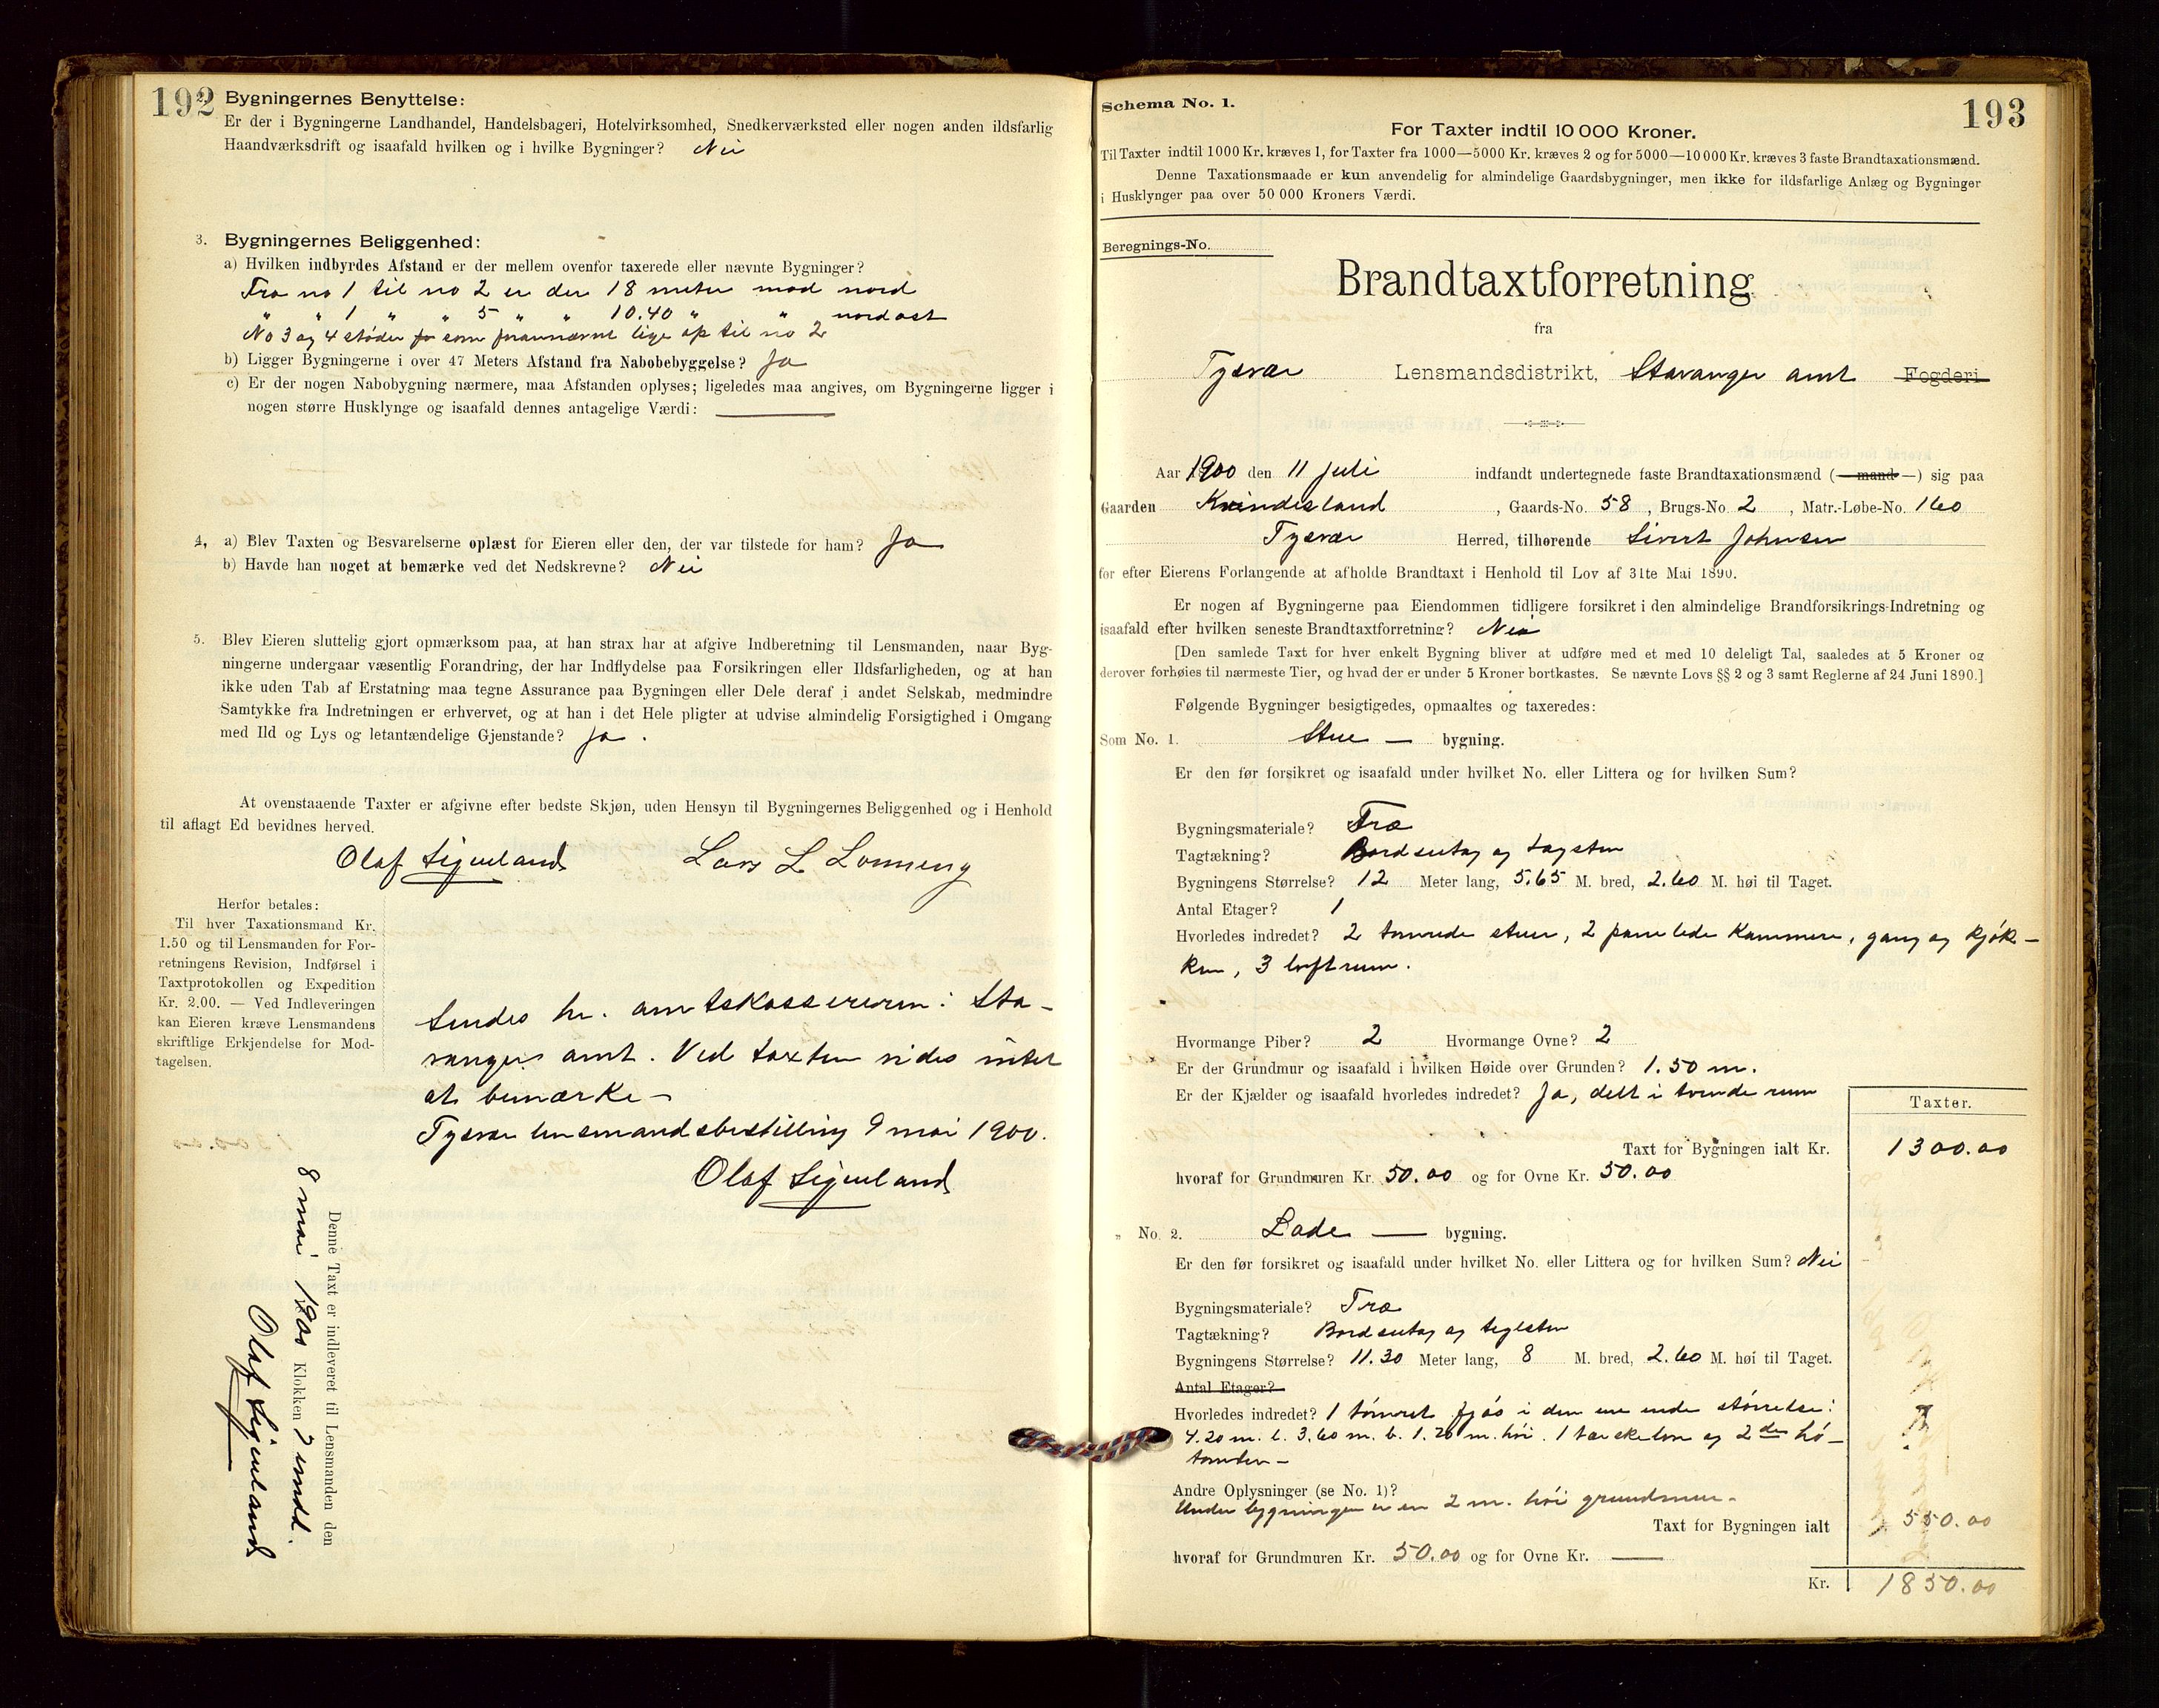 192
Bygningernes Benyttelse:
Er der i Bygningerne Landhandel, Handelsbageri, Hotelvirksomhed, Snedkerværksted eller nogen anden ildsfarlig
Haandværksdrift og isaafald hvilken og i hvilke Bygninger? Nei
3. Bygningernes Beliggenhed:
a) Hvilken indbyrdes Afstand er der mellem ovenfor taxerede eller nævnte Bygninger?
Fra no 1 til no 2 er der 18 meter mod nord
" " 1 " " 5 " " 10.40 " " nordost
No 3 og 4 støder som fornævnt lige op til no 2
b) Ligger Bygningerne i over 47 Meters Afstand fra Nabobebyggelse? Ja
c) Er der nogen Nabobygning nærmere, maa Afstanden oplyses; ligeledes maa angives, om Bygningerne ligger i
nogen større Husklynge og isaafald dennes antagelige Værdi: —
4. a) Blev Taxten og Besvarelserne oplæst for Eieren eller den, der var tilstede for ham? Ja
b) Havde han noget at bemærke ved det Nedskrevne? Nei
5. Blev Eieren sluttelig gjort opmærksom paa, at han strax har at afgive Indberetning til Lensmanden, naar Byg-
ningerne undergaar væsentlig Forandring, der har Indflydelse paa Forsikringen eller Ildsfarligheden, og at han
ikke uden Tab af Erstatning maa tegne Assurance paa Bygningen eller Dele deraf i andet Selskab, medmindre
Samtykke fra Indretningen er erhvervet, og at han i det Hele pligter at udvise almindelig Forsigtighed i Omgang
med Ild og Lys og letantændelige Gjenstande? Ja.
At ovenstaaende Taxter er afgivne efter bedste Skjøn, uden Hensyn til Bygningernes Beliggenhed og i Henhold
til aflagt Ed bevidnes herved.
Olaf Sigveland Lars L
Herfor betales:
Til hver Taxationsmand Kr.
1.50 og til Lensmanden for For-
retningens Revision, Indførsel i
Taxtprotokollen og Expedition
Kr. 2.00. — Ved Indleveringen
kan Eieren kræve Lensmandens
skriftlige Erkjendelse for Mod-
tagelsen.
Sendes hr. amtskassereren i Sta-
vanger amt. Ved taxten vides intet
at bemærke —
Tysvær lensmandsbestilling 9 mai 1900.
Olaf Sigveland
Denne Taxt er indleveret til Lensmanden den
8 mai 1901 Klokken 7 emdd.
Olaf Sigveland
Schema No. 1.
193
For Taxter indtil 10 000 Kroner.
Til Taxter indtil 1000 Kr. kræves 1, for Taxter fra 1000—5000 Kr. kræves 2 og for 5000—10 000 Kr. kræves 3 faste Brandtaxationsmænd.
Denne Taxationsmaade er kun anvendelig for almindelige Gaardsbygninger, men ikke for ildsfarlige Anlæg og Bygninger
i Husklynger paa over 50 000 Kroners Værdi.
Beregnings-No.
Brandtaxtforretning
fra
Tysvær Lensmandsdistrikt, Stavanger amt Fogderi
Aar 1900 den 11 juli indfandt undertegnede faste Brandtaxationsmænd (—mand—) sig paa
Gaarden Kvindesland, Gaards-No. 58, Brugs-No. 2, Matr.-Løbe-No. 160
Tysvær Herred, tilhørende Sivert Johnsen
for efter Eierens Forlangende at afholde Brandtaxt i Henhold til Lov af 31te Mai 1890.
Er nogen af Bygningerne paa Eiendommen tidligere forsikret i den almindelige Brandforsikrings-Indretning og
isaafald efter hvilken seneste Brandtaxtforretning? Nei
[Den samlede Taxt for hver enkelt Bygning bliver at udføre med et med 10 deleligt Tal, saaledes at 5 Kroner og
derover forhøies til nærmeste Tier, og hvad der er under 5 Kroner bortkastes. Se nævnte Lovs §§ 2 og 3 samt Reglerne af 24 Juni 1890.]
Følgende Bygninger besigtigedes, opmaaltes og taxeredes:
Som No. 1. Stue — bygning.
Er den før forsikret og isaafald under hvilket No. eller Littera og for hvilken Sum?
Bygningsmateriale? Træ
Tagtækning? Bordsutag og tagsten
Bygningens Størrelse? 12 Meter lang, 5.65 M. bred, 2.60 M. høi til Taget.
Antal Etager? 1
Hvorledes indredet? 2 tømrede stuer, 2 panelede kammere, gang og kjøk-
ken, 3 loftrum.
Hvormange Piber? 2 Hvormange Ovne? 2
Er der Grundmur og isaafald i hvilken Høide over Grunden? 1.50 m.
Er der Kjælder og isaafald hvorledes indredet? Ja, delt i tvende rum
Taxter.
Taxt for Bygningen ialt Kr. 1300.00
hvoraf for Grundmuren Kr. 50.00 og for Ovne Kr. 50.00
" No. 2. Lade — bygning.
Er den før forsikret og isaafald under hvilket No. eller Littera og for hvilken Sum? Nei
Bygningsmateriale? Træ
Tagtækning? Bordsutag og teglsten
Bygningens Størrelse? 11.30 Meter lang, 8 M. bred, 2.60 M. høi til Taget.
Antal Etager?
Hvorledes indredet? 1 tømret fjøs i den ene ende størrelse:
4.20 m. l. 3.60 m. b. 1.20 m. høi. 1 tærskelon og 2de hø-
tomter —
Andre Oplysninger (se No. 1)?
Under bygningen er en 2 m. høi grundmur —
Taxt for Bygningen ialt 550.00
hvoraf for Grundmuren Kr. 50.00 og for Ovne Kr. —
Kr. 1850.00